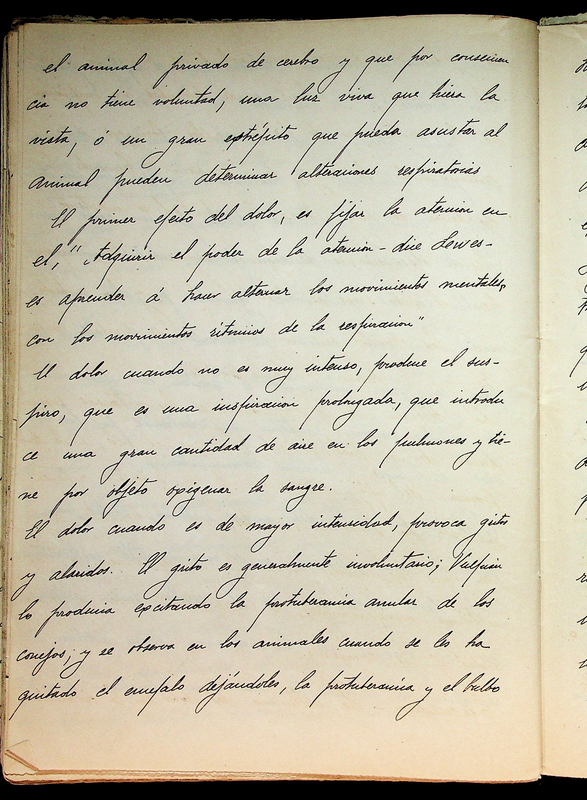 el animal privado de cerebro y que por consecuen
cia no tiene voluntad, una luz viva que hiera la
vista, ó un gran estrépito que pueda asustar al
animal pueden determinar alteraciones respiratorias
El primer efecto del dolor, es fijar la atencion en
el, "Adquirir el poder de la atencion - dice Lewes -
es aprender á hacer alternar los movimientos mentales,
con los movimientos ritmicos de la respiracion"
El dolor cuando no es muy intenso, produce el sus-
piro, que es una inspiracion prolongada, que introdu
ce una gran cantidad de aire en los pulmones y tie-
ne por objeto oxigenar la sangre.
El dolor cuando es de mayor intensidad, provoca gritos
y alaridos. El grito es generalmente involuntario; Vulpian
lo producia excitando la protuberancia anular de los
conejos; y se observa en los animales cuando se les ha
quitado el encefalo dejándoles, la protuberancia y el bulbo